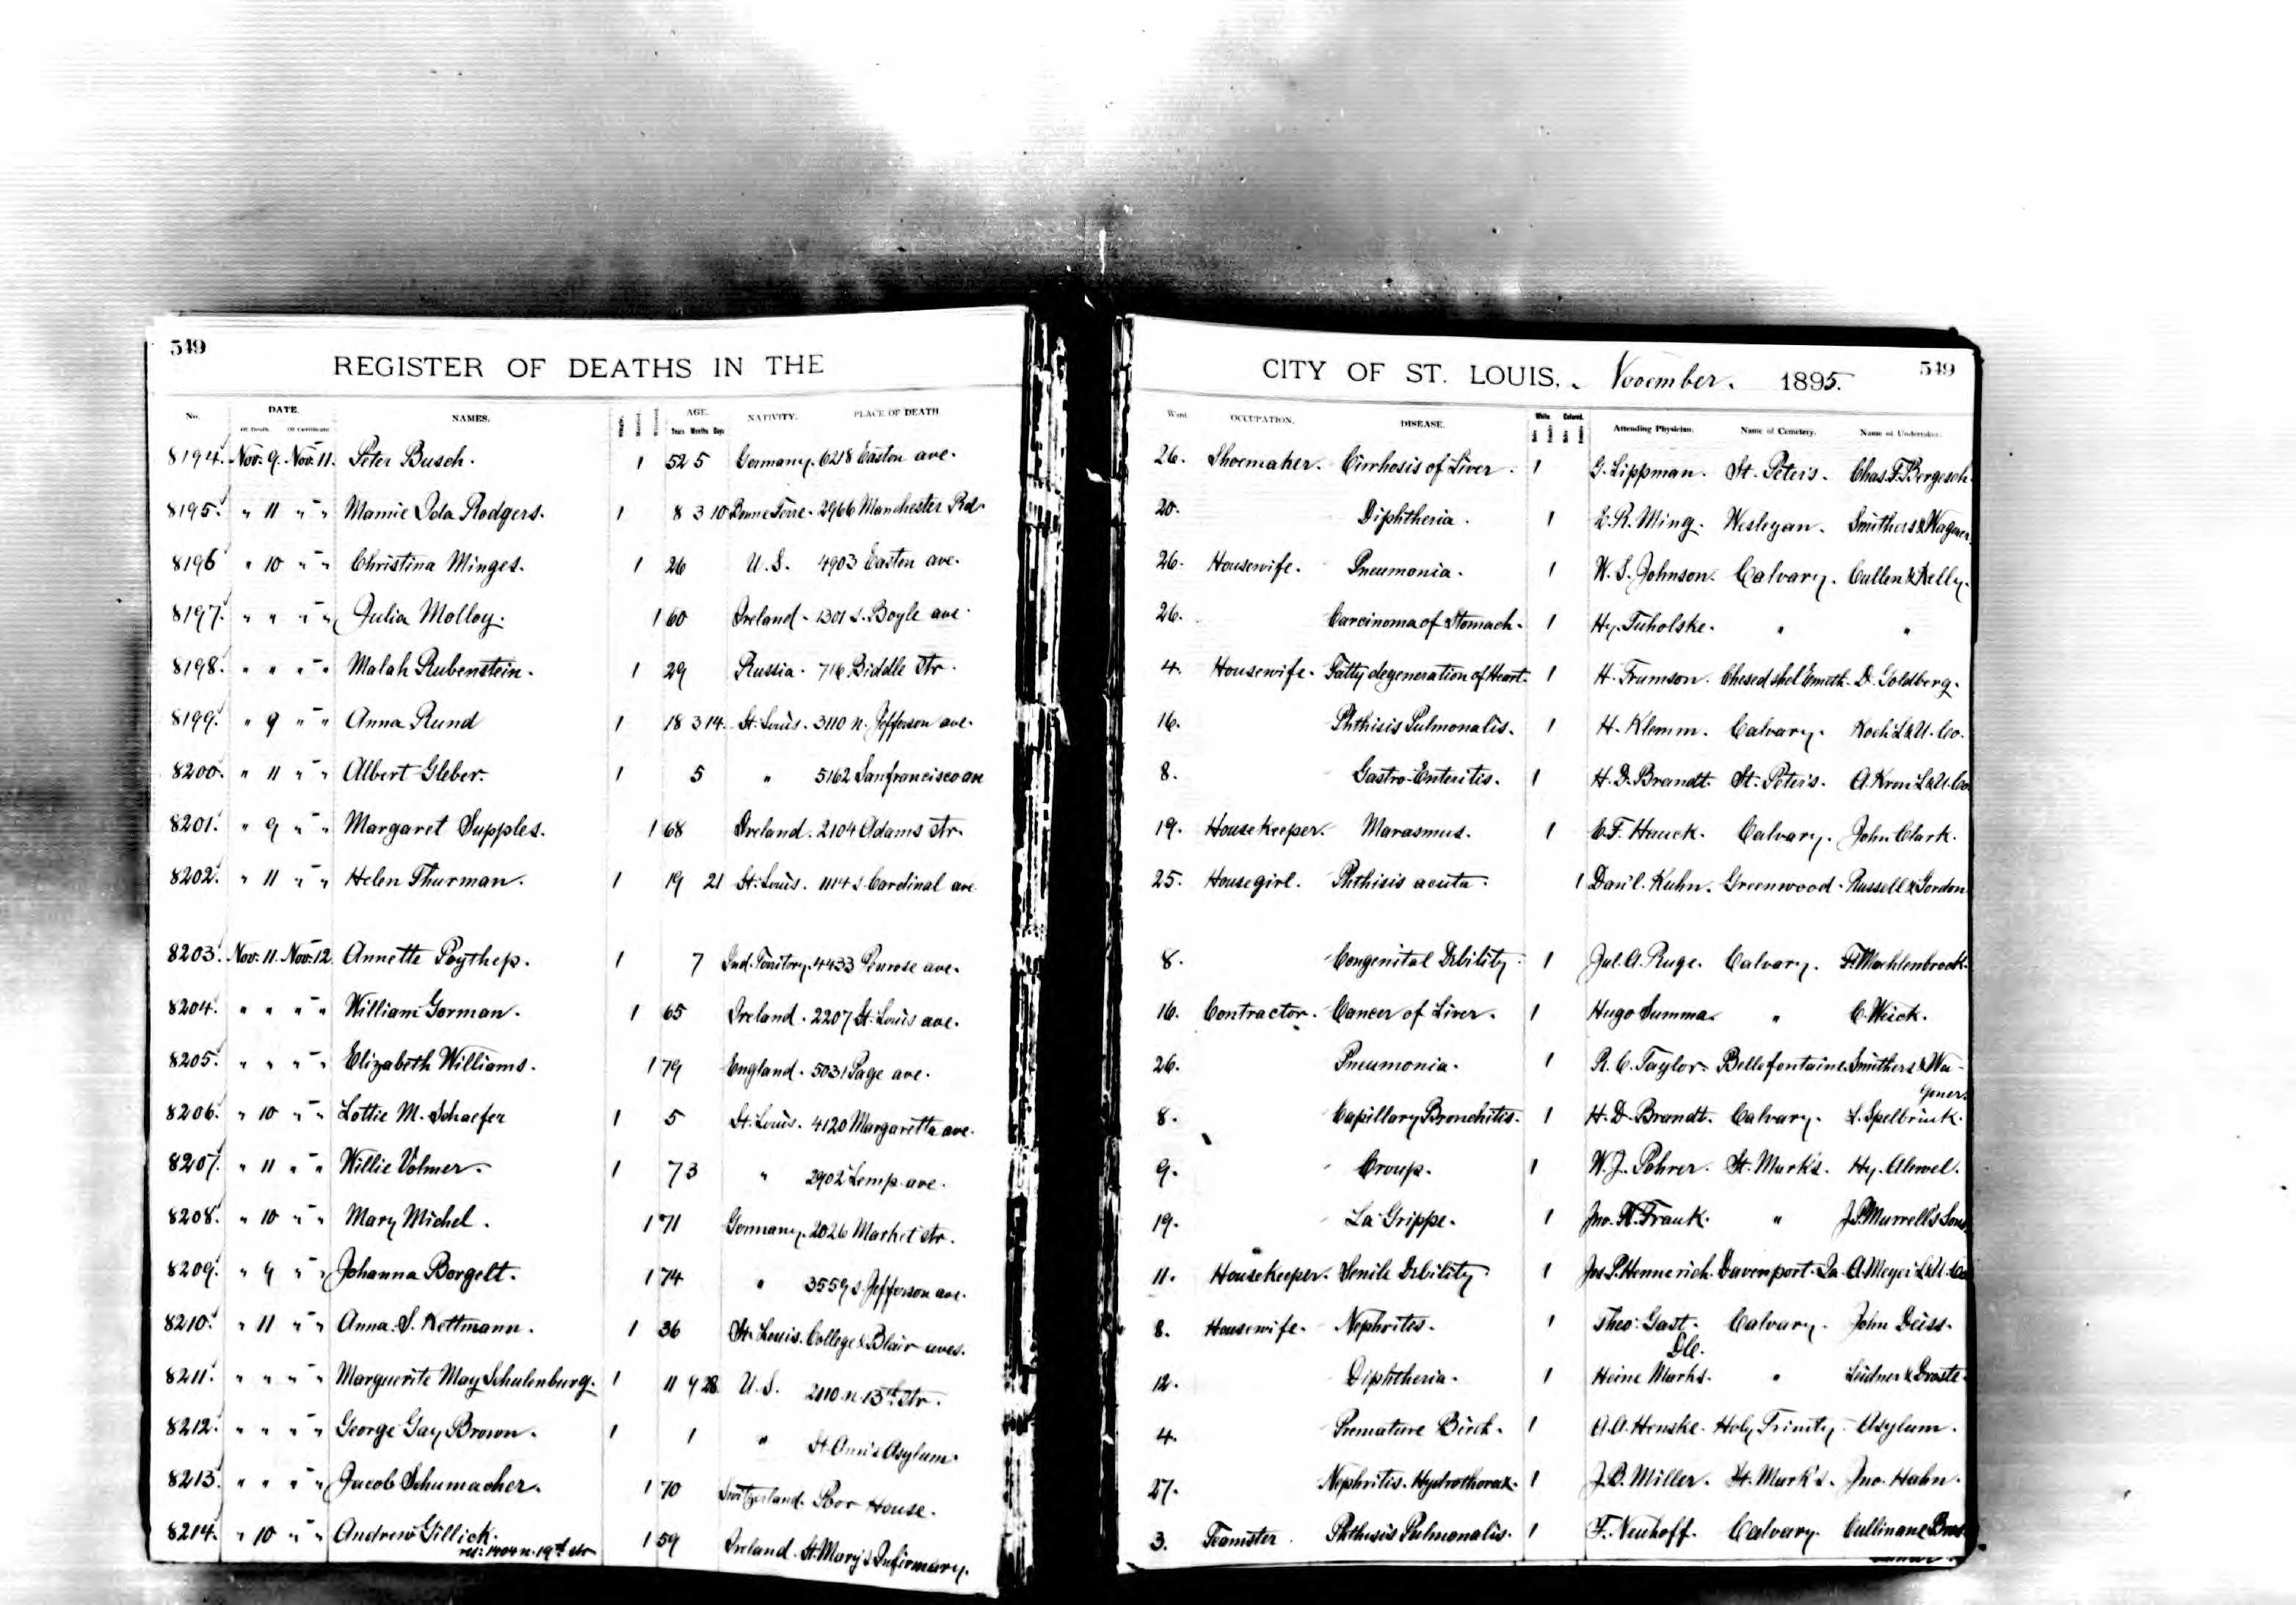 549
REGISTER OF DEATHS IN THE
No. DATE. NAMES. Single. Married. Widowed. AGE. NATIVITY. PLACE OF DEATH
Of Death. Of Certificate Years Months Days
8194. Nov. 9. Nov. 11. Peter Busch. 1 52 5 Germany. 6218 Easton ave.
8195. " 11 " " Mamie Ida Rodgers. 1 8 3 10 Bonne Terre. 2966 Manchester Rd.
8196 " 10 " " Christina Minges. 1 26 U.S. 4903 Easton ave.
8197. " " " " Julia Molloy. 1 60 Ireland. 1301 S. Boyle ave.
8198. " " " " Malah Rubenstein. 1 29 Russia. 716 Biddle Str.
8199. " 9 " " Anna Rund 1 18 3 14. St. Louis. 3110 n. Jefferson ave.
8200. " 11 " " Albert Gleber. 1 5 " 5162 Sanfrancisco ave
8201. " 9 " " Margaret Supples. 1 68 Ireland. 2104 Adams str.
8202. " 11 " " Helen Thurman. 1 19 21 St. Louis. 1114 S Cardinal ave
8203. Nov. 11. Nov. 12. Annette Poythep. 1 7 Ind. Territory. 4433 Penrose ave.
8204. " " " " William Gorman. 1 65 Ireland. 2207 St. Louis ave.
8205. " " " " Elizabeth Williams. 1 79 England. 5031 Page ave.
8206. " 10 " " Lottie M. Schaefer 1 5 St. Louis. 4120 Margaretta ave.
8207. " 11 " " Willie Volmer. 1 7 3 " 2902 Lemp ave.
8208. " 10 " " Mary Michel. 1 71 Germany. 2026 Market str.
8209. " 9 " " Johanna Borgelt. 1 74 " 3559 S. Jefferson ave.
8210. " 11 " " Anna. S. Kettmann. 1 36 St. Louis. College & Blair aves.
8211. " " " " Marguerite May Schulenburg. 1 11 9 28. U.S. 2110 n. 13th Str.
8212. " " " " George Gay Brown. 1 1 " St. Ann's Asylum.
8213. " " " " Jacob Schumacher. 1 70 Switzerland. Poor House.
8214. " 10 " " Andrew Gillick. 1 59 Ireland. St. Mary's Infirmary.
res: 1404 n. 19th str
CITY OF ST. LOUIS. November. 1895. 549
Ward. OCCUPATION. DISEASE. White. Colored. Attending Physician. Name of Cemetery. Name of Undertaker.
26. Shoemaker. Cirrhosis of Liver. 1 G. Lippman. St. Peter's. Chas. F. Bergesch.
20. Diphtheria. 1 E. R. Ming. Wesleyan. Smithers & Wagoner.
26. Housewife. Pneumonia. 1 W. S. Johnson. Calvary. Cullen & Kelly.
26. Carcinoma of Stomach. 1 Hy. Tuholske. " "
4. Housewife. Fatty degeneration of Heart. 1 H. Frumson. Chesed shel Emeth. D. Goldberg.
16. Phthisis Pulmonalis. 1 H. Klemm. Calvary. Koch L & U. Co.
8. Gastro-Enteritis. 1 H. D. Brandt. St. Peter's. A. Kron L & U. Co.
19. Housekeeper. Marasmus. 1 E. F. Hauck. Calvary. John Clark.
25. Housegirl. Phthisis acuta. 1 Dan'l. Kuhn. Greenwood. Russell & Gordon
8. Congenital Debility. 1 Jul. A. Ruge. Calvary. F. Mochlenbrock.
16. Contractor. Cancer of Liver. 1 Hugo Summa. " C. Weick.
26. Pneumonia. 1 R. C. Taylor. Bellefontaine. Smithers & Wa-
goner.
8. Capillary Bronchitis. 1 H. D. Brandt. Calvary. L. Spelbrink.
9. Croup. 1 W. J. Pohrer. St. Mark's. Hy. Alewel.
19. La Grippe. 1 Jno. H. Frank. " J. P. Murrell's Sons
11. Housekeeper. Senile Debility. 1 Jos. P. Hennerich. Davenport. Ia. A. Meyer L & U. Co
8. Housewife. Nephrites. 1 Theo. Gast. Calvary. John Deiss.
12. Diphtheria. 1 Heine Marks. " Leidner & Droste.
4. Premature Birth. 1 A. A. Henske. Holy Trinity. Asylum.
27. Nephritis. Hydrothorax. 1 J. B. Miller. St. Mark's. Jno. Hahn.
3. Teamster. Phthisis Pulmonalis. 1 F. Neuhoff. Calvary. Cullinane Bros.